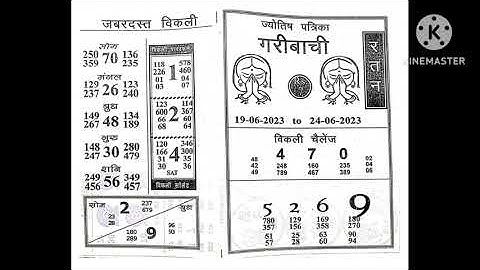 जबरदस्त विकली
सोम
250 70 136
359 235
मंगल
129 26 123
237 240
बुध
149 48 134
267 189
गुरु
148 30 280
247 479
शनि
249 56 349
456 457
118 578
226 460
01 1 04
03 07
123 114
600 2 367
66 60
68 64
120 346
166 4 300
31 30
35 36
SAT
सोम 2 237
679
23
28
बुध
180
289 9 96
93
ज्योतिष पत्रिका
गरीबाची
रतन
19-06-2023 to 24-06-2023
विकली चैलेंज
4 7 0
48 02
42 248 160 235 04
49 789 467 389 06
5 2 6 9
780 129 150 180
357 156 358 270
51 25 63 90
57 28 60 94
KINEMASTER